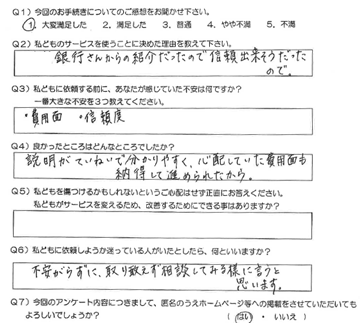 Q1）今回のお手続きについてのご感想をお聞かせ下さい。
1. 大変満足した　2、満足した　3、普通　4、やや不満　5、不満
Q2）私どものサービスを使うことに決めた理由を教えて下さい。
銀行さんからの紹介だったので信頼出来そうだった
ので。
Q3）私どもに依頼する前に、あなたが感じていた不安は何ですか？
一番大きな不安を3つ教えてください。
・費用面　・信頼度
Q4）良かったところはどんなところでしたか？
説明がていねいで分かりやすく、心配していた費用面も
納得して進められたから。
Q5）私どもを傷つけるかもしれないというご心配はせず正直にお答えください。
私どもがサービスを変えるため、改善するためにできる事はありますか？
Q6）私どもに依頼しようか迷っている人がいたとしたら、何といいますか？
不安がらずに、取り敢えず相談してみる様に言うと
思います。
Q7）今回のアンケート内容につきまして、匿名のうえホームページ等への掲載をさせていただいても
よろしいでしょうか？　（はい・いいえ）